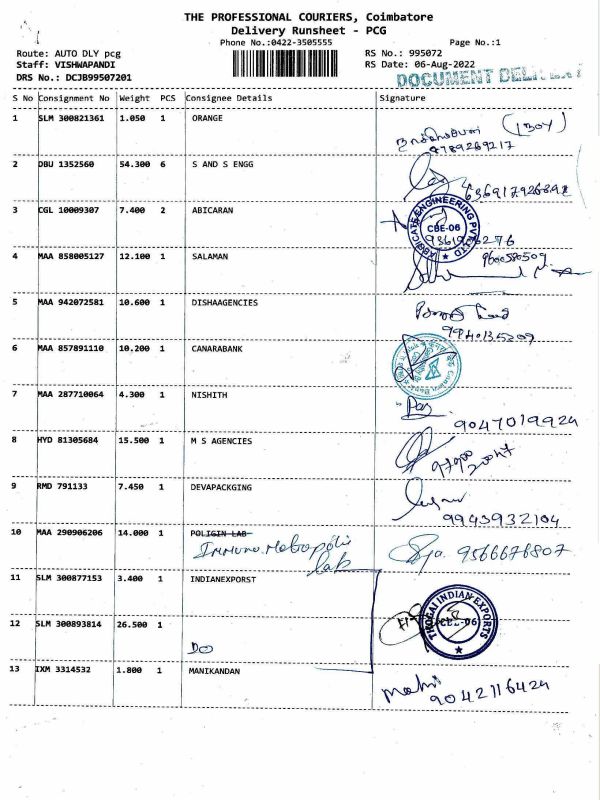 THE PROFESSIONAL COURIERS, Coimbatore
Delivery Runsheet - PCG
Phone No.:0422-3505555 Page No.:1
Route: AUTO DLY pcg RS No.: 995072
Staff: VISHWAPANDI RS Date: 06-Aug-2022
DRS No.: DCJB99507201 DOCUMENT DELIVERY
S No Consignment No Weight PCS Consignee Details Signature
1 SLM 300821361 1.050 1 ORANGE
(BOY)
9789269217
2 DBU 1352560 54.300 6 S AND S ENGG
3 CGL 10009307 7.400 2 ABICARAN
ENGINEERING PVT LTD
CBE-06
4 MAA 858005127 12.100 1 SALAMAN
9600580509
5 MAA 942072581 10.600 1 DISHAAGENCIES
6 MAA 857891110 10.200 1 CANARABANK
7 MAA 287710064 4.300 1 NISHITH
9047019924
8 HYD 81305684 15.500 1 M S AGENCIES
9 RMD 791133 7.450 1 DEVAPACKGING
9943932104
10 MAA 290906206 14.000 1 POLIGIN LAB
Immuno Metropolis
Lab
9566676807
11 SLM 300877153 3.400 1 INDIANEXPORST
12 SLM 300893814 26.500 1
DO
THOGAI INDIAN EXPORTS
CBE-06
13 IXM 3314532 1.800 1 MANIKANDAN
Mahi
9042116424